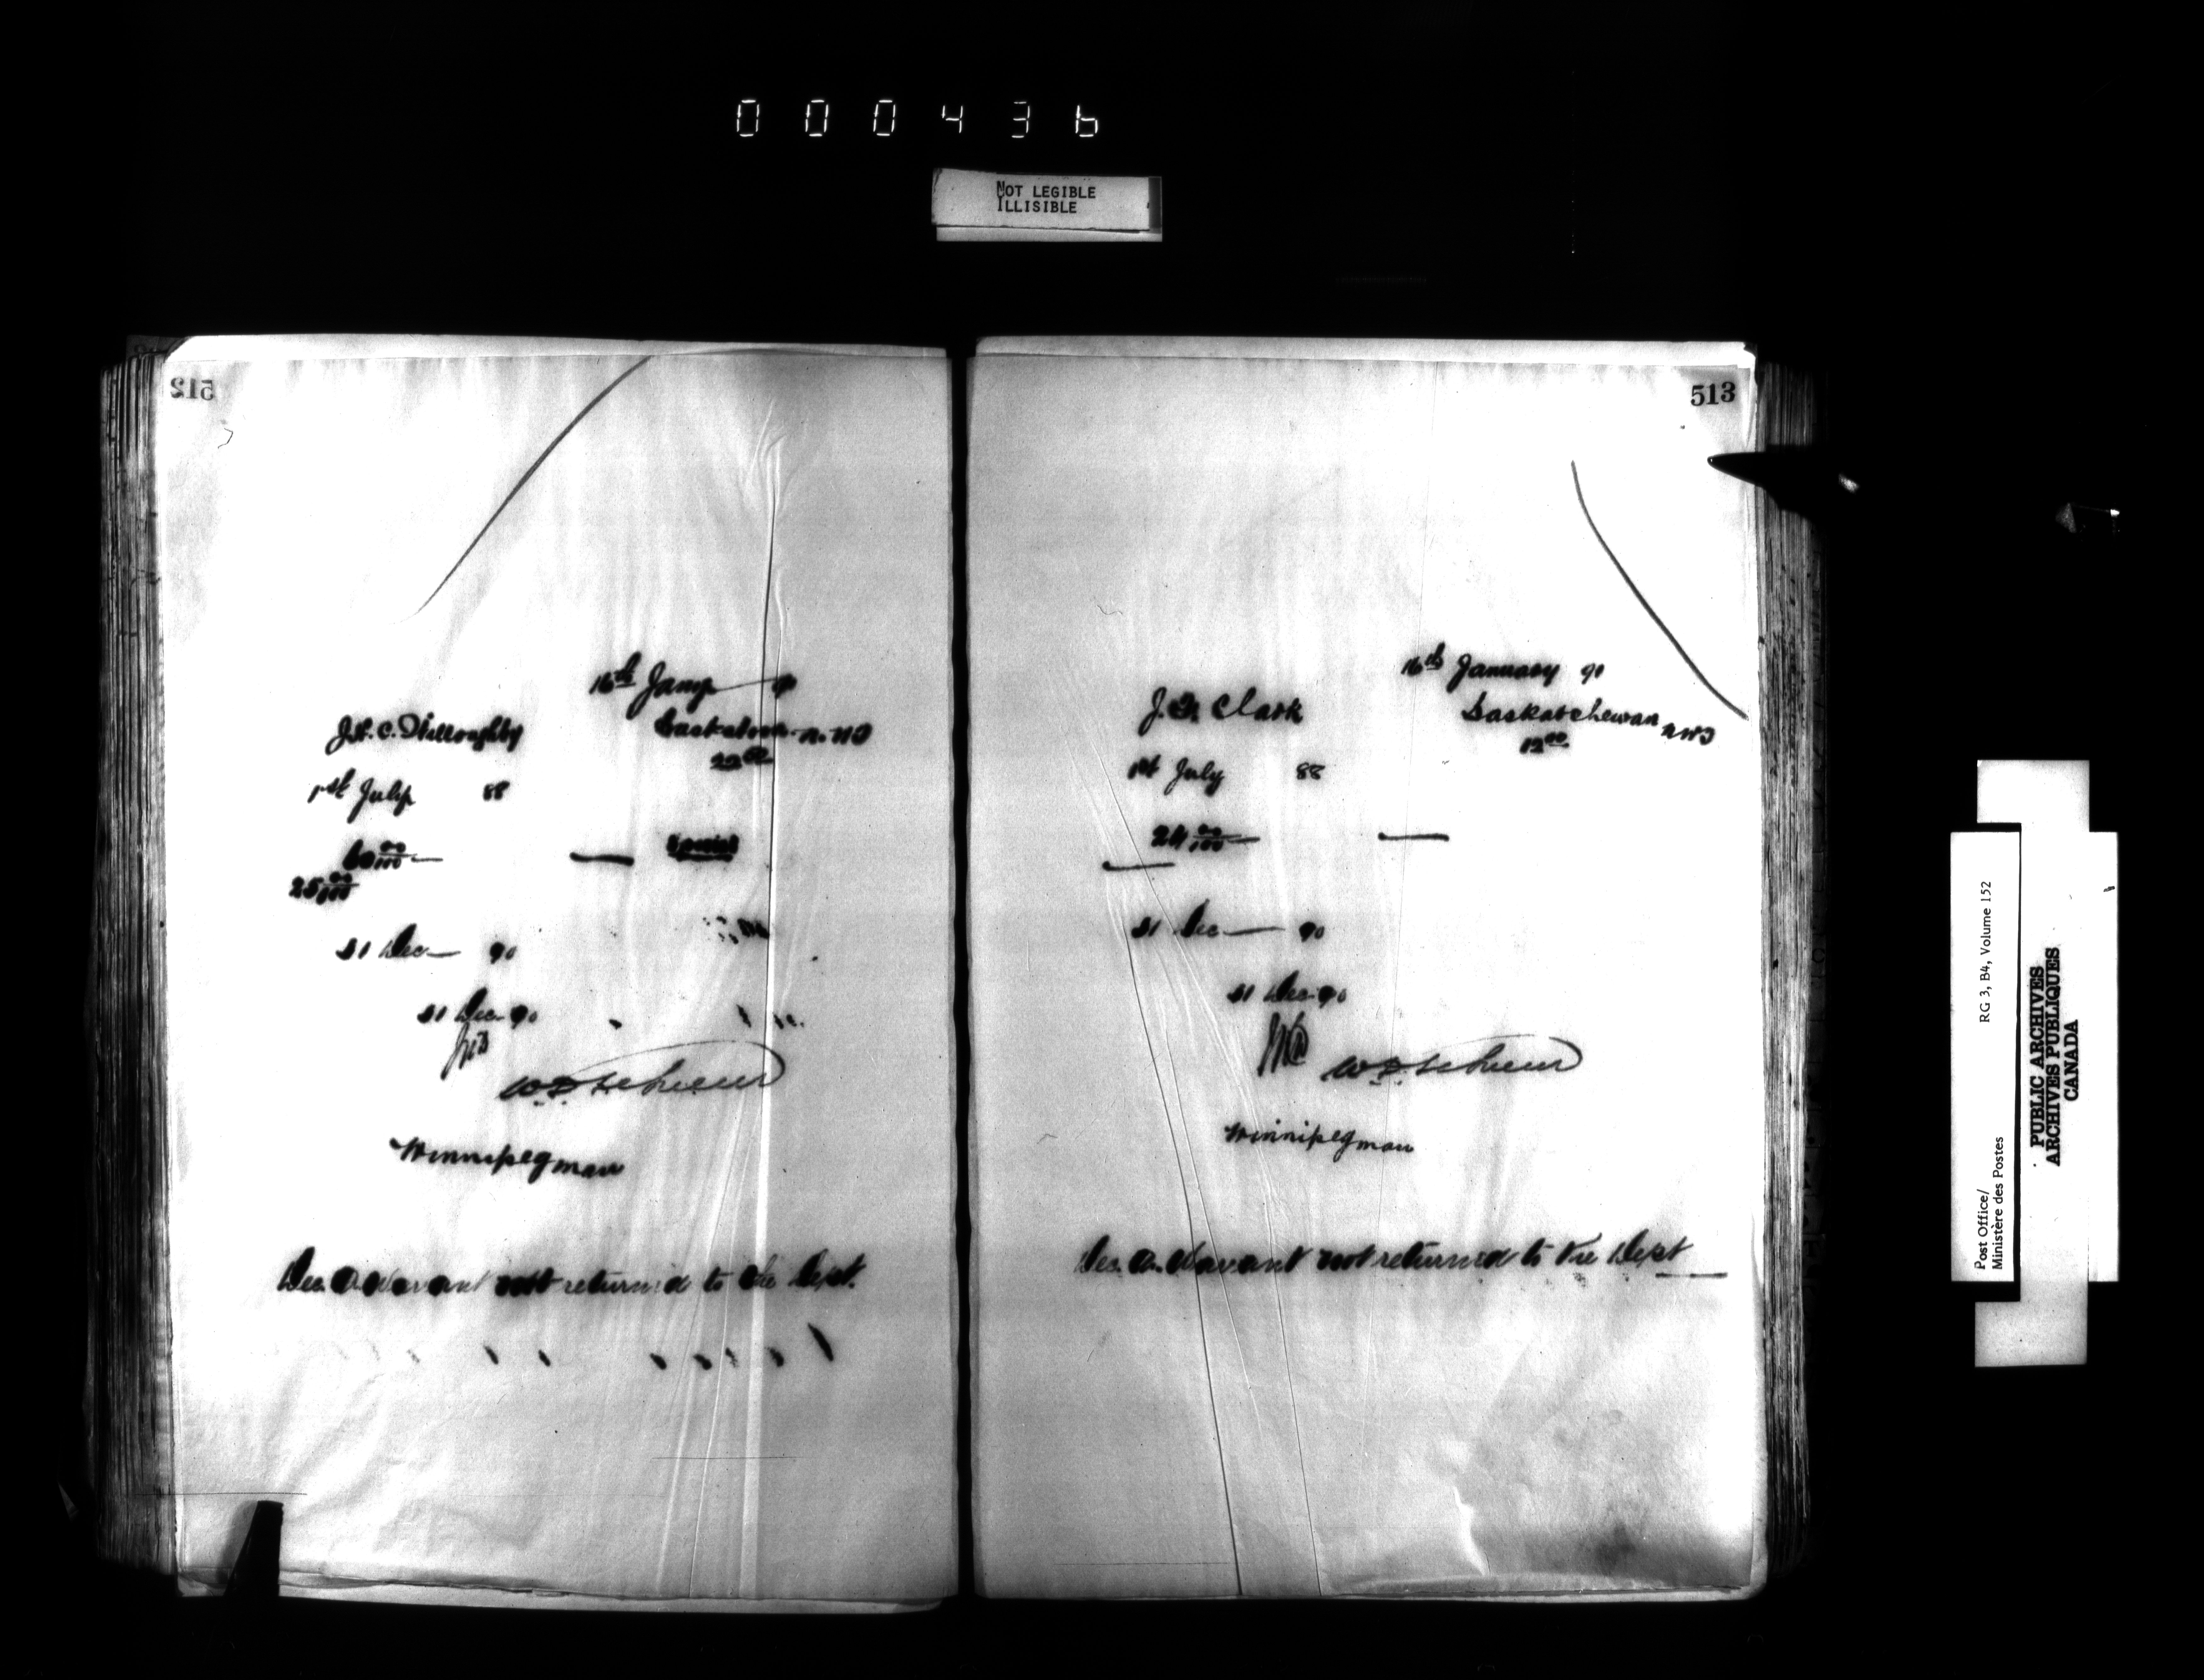 000436
NOT LEGIBLE
ILLISIBLE
512
16th Jany 90
J.H.C. Willoughby
Saskatoon N.W.T
22 00
1st July 88
60 00/100
25 00/100
31 Dec 90
31 Dec 90
Winnipeg man
Dec. a. Warant not returned to the Dept.
513
16th January 90
J. Clark
Saskatchewan NWT
12 00
1st July 88
24 00/100
31 Dec 90
31 Dec 90
Winnipeg man
Dec. a. Warant not returned to the Dept
Post Office/
Ministère des Postes
RG 3, B4, Volume 152
PUBLIC ARCHIVES
ARCHIVES PUBLIQUES
CANADA